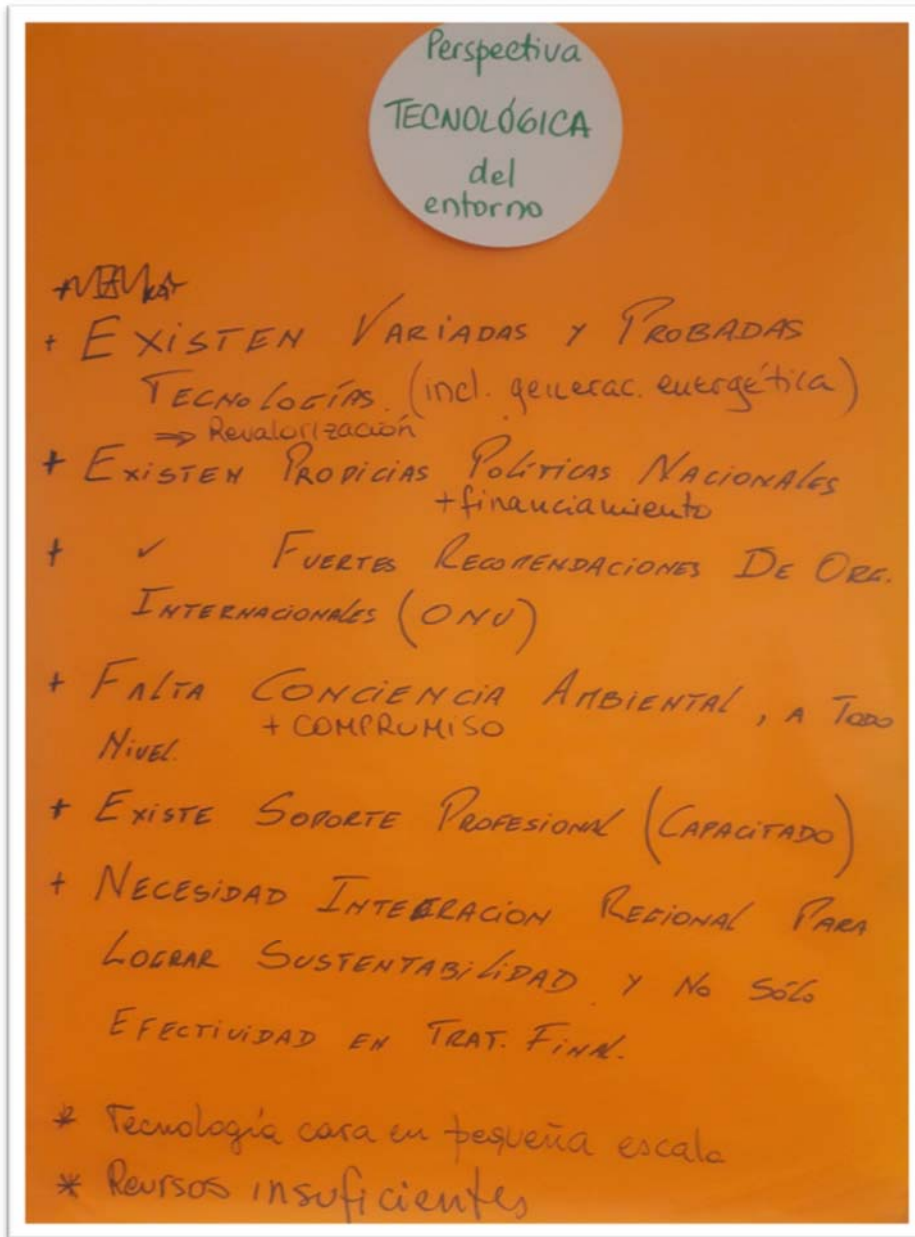 Perspectiva
TECNOLÓGICA
del
entorno
+ EXISTEN VARIADAS Y PROBADAS
TECNOLOGÍAS. (incl. generac. energética)
⇒ Revalorización
+ EXISTEN PROPICIAS POLÍTICAS NACIONALES
+ financiamiento
+ ✓ FUERTES RECOMENDACIONES DE ORG.
INTERNACIONALES (ONU)
+ FALTA CONCIENCIA AMBIENTAL, A TODO
+ COMPRUMISO
NIVEL.
+ EXISTE SOPORTE PROFESIONAL (CAPACITADO)
+ NECESIDAD INTEGRACION REGIONAL PARA
LOGRAR SUSTENTABILIDAD Y NO SÓLO
EFECTIVIDAD EN TRAT. FINAL.
* Tecnología cara en pequeña escala
* Reursos insuficientes